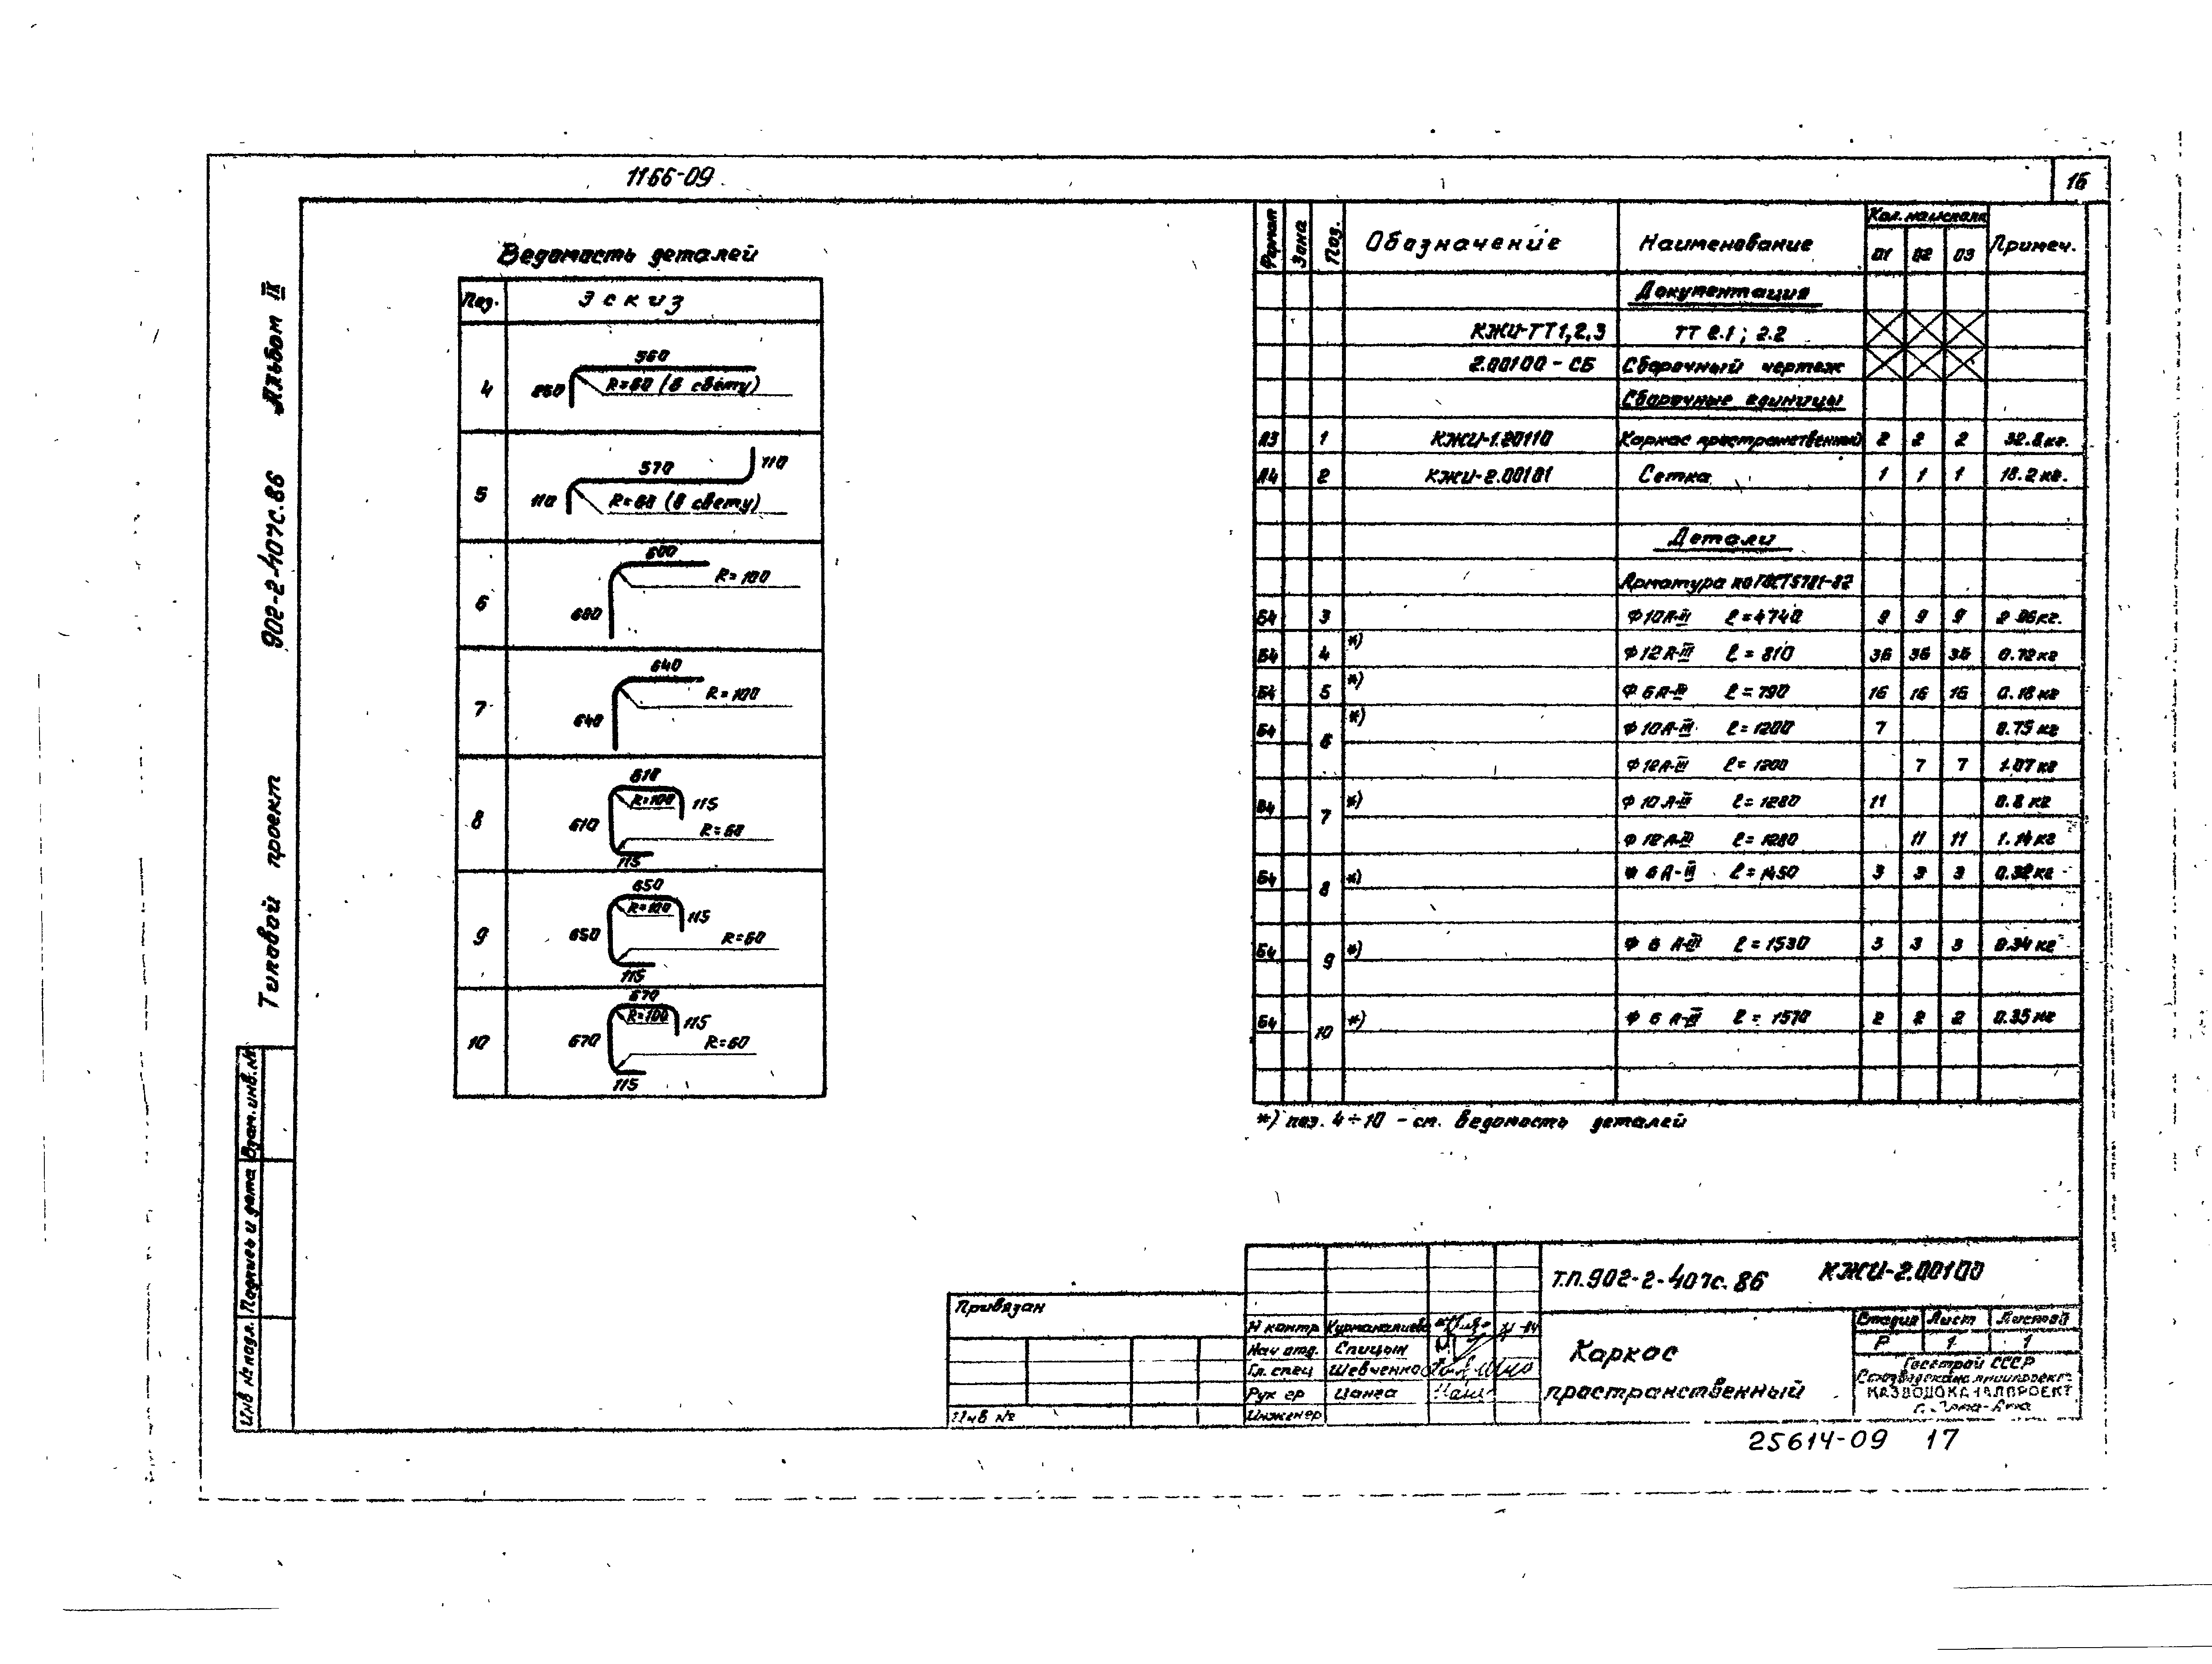 1166-09
16
Альбом II
902-2-407с.86
Типовой проект
Взам.инв.№
Подпись и дата
Инв № подл.
Ведомость деталей
Поз. Эскиз
4 560 250 R=60 (в свету)
5 570 110 110 R=60 (в свету)
6 600 600 R=100
7 640 640 R=100
8 610 R=100 115 610 R=60 115
9 650 R=100 115 650 R=60 115
10 670 R=100 115 670 R=60 115
Формат Зона Поз. Обозначение Наименование Кол. на исполн Примеч.
01 02 03
Документация
КЖИ-ТТ1,2,3 ТТ 2.1; 2.2
2.00100-СБ Сборочный чертеж
Сборочные единицы
А3 1 КЖИ-1.20110 Каркас пространственный 2 2 2 32.8кг.
А4 2 КЖИ-2.00101 Сетка 1 1 1 18.2кг.
Детали
Арматура по ГОСТ5781-82
Б4 3 Ф10А-III ℓ=4740 9 9 9 2.96кг.
Б4 4 *) Ф12А-III ℓ=810 36 36 36 0.72кг
Б4 5 *) Ф6А-III ℓ=790 16 16 16 0.18кг
Б4 6 *) Ф10А-III ℓ=1200 7 0.75кг
Ф12А-III ℓ=1200 7 7 1.07кг
Б4 7 *) Ф10А-III ℓ=1280 11 0.8кг
Ф12А-III ℓ=1280 11 11 1.14кг
Б4 8 *) Ф6А-III ℓ=1450 3 3 3 0.32кг
Б4 9 *) Ф6А-III ℓ=1530 3 3 3 0.34кг
Б4 10 *) Ф6А-III ℓ=1570 2 2 2 0.35кг
*) поз. 4÷10 - см. ведомость деталей
Т.П.902-2-407с.86 КЖИ-2.00100
Привязан
Инв №
Н контр Курманалиева
Нач отд. Спицын
Гл. спец Шевченко
Рук гр Цанга
Инженер
Каркас
пространственный
Стадия Лист Листов
Р 1 1
Госстрой СССР
Союзводоканалниипроект
КАЗВОДОКАНАЛПРОЕКТ
г. Алма-Ата
25614-09 17